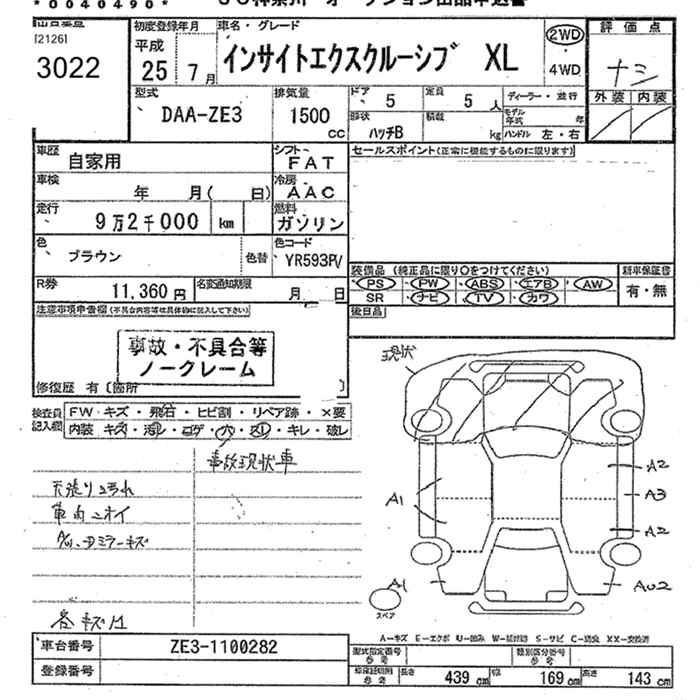 *0040490*
[2126]
3022
初度登録年月
平成
25 7月
車名・グレード
インサイトエクスクルーシブ XL
2WD
4WD
評価点
ナシ
外装 内装
型式
DAA-ZE3
排気量
1500
CC
ドア
5
定員
5 人
ディーラー・並行
形状
ハッチB
積載
kg
モデル年式
年
ハンドル 左・右
車歴
自家用
シフト
FAT
セールスポイント(正常に機能するものに限ります)
車検
年 月( 日)
冷房
AAC
走行
9万2千000 km
燃料
ガソリン
色
ブラウン
色替
色コード
YR593P/V
装備品 (純正品に限り○をつけてください)
新車保証書
PS PW ABS エアB AW
有・無
SR ナビ TV カワ
R券
11,360 円
名変通知期限
月 日
後日品
注意事項申告欄(不具合内容等は具体的に記入して下さい)
事故・不具合等
ノークレーム
修復歴 有〔箇所 〕
現状
検査員
記入欄
FW・キズ・飛石・ヒビ割・リペア跡・×要
内装・キズ・汚レ・コゲ・穴・スレ・キレ・破レ
事故現状車
天張り汚れ
車内ニオイ
A2
A1
A3
A2
A1
AU2
スペア
各キズ凹
A-キズ E-エクボ U-凹み W-補修跡 S-サビ C-腐食 XX-交換済
車台番号
ZE3-1100282
登録番号
型式指定番号
参考
類別区分番号
参考
参考
長さ
439 cm
幅
169 cm
高さ
143 cm